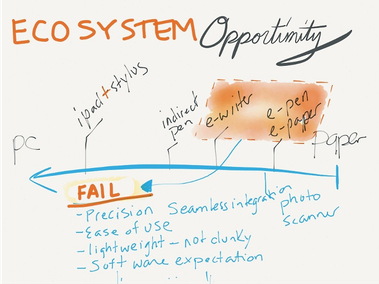 ECOSYSTEM Opportunity
ipad + stylus
indirect pen
e-writer
e-pen
e-paper
pc
paper
FAIL
- Precision Seamless integration
- Ease of use
- lightweight - not clunky
- Software expectation
photo
scanner